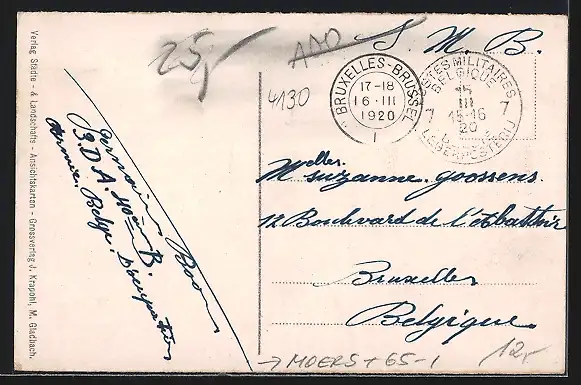 Verlag Städte- & Landschafts-Ansichtskarten - Grossverlag J. Krapohl, M. Gladbach.
25,-
S. M. B.
4130
BRUXELLES-BRUSSEL
17-18
16-III
1920
1
POSTES MILITAIRES
BELGIQUE
15
III
15-16
20
7 7
LEGERPOSTERIJ
Melle. Suzanne Goossens.
12 Boulevard de l'Abattoir
Bruxelles
Belgique.
Germain Boon
3. D. A. 40 B.
Armée Belge. Occupation
→ MOERS + 65-1
12,-